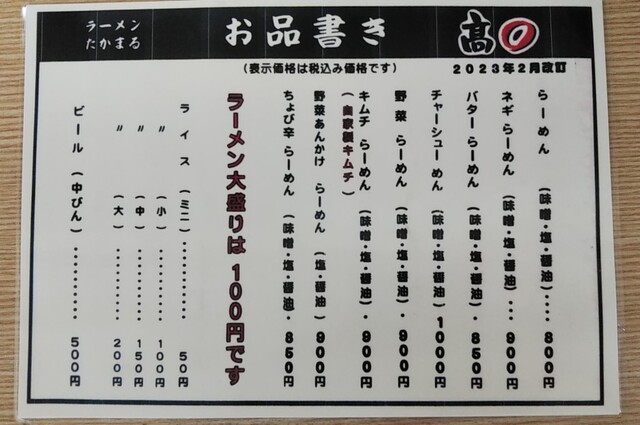 ラーメン
たかまる
お品書き
髙〇
(表示価格は税込み価格です)
2023年2月改訂
らーめん (味噌・塩・醤油)・・・・ 800円
ネギらーめん (味噌・塩・醤油)・・・ 900円
バターらーめん (味噌・塩・醤油)・ 850円
チャーシューめん (味噌・塩・醤油) 1000円
野菜らーめん (味噌・塩・醤油)・ 900円
キムチらーめん (味噌・塩・醤油)・ 900円
(自家製キムチ)
野菜あんかけ らーめん (塩・醤油) 900円
ちょび辛らーめん (味噌・塩・醤油)・ 850円
ラーメン大盛りは100円です
ライス (ミニ)・・・・・・・・・・・ 50円
〃 (小)・・・・・・・・ 100円
〃 (中)・・・・・・・・ 150円
〃 (大)・・・・・・・・ 200円
ビール (中びん)・・・・・・・・・・ 500円